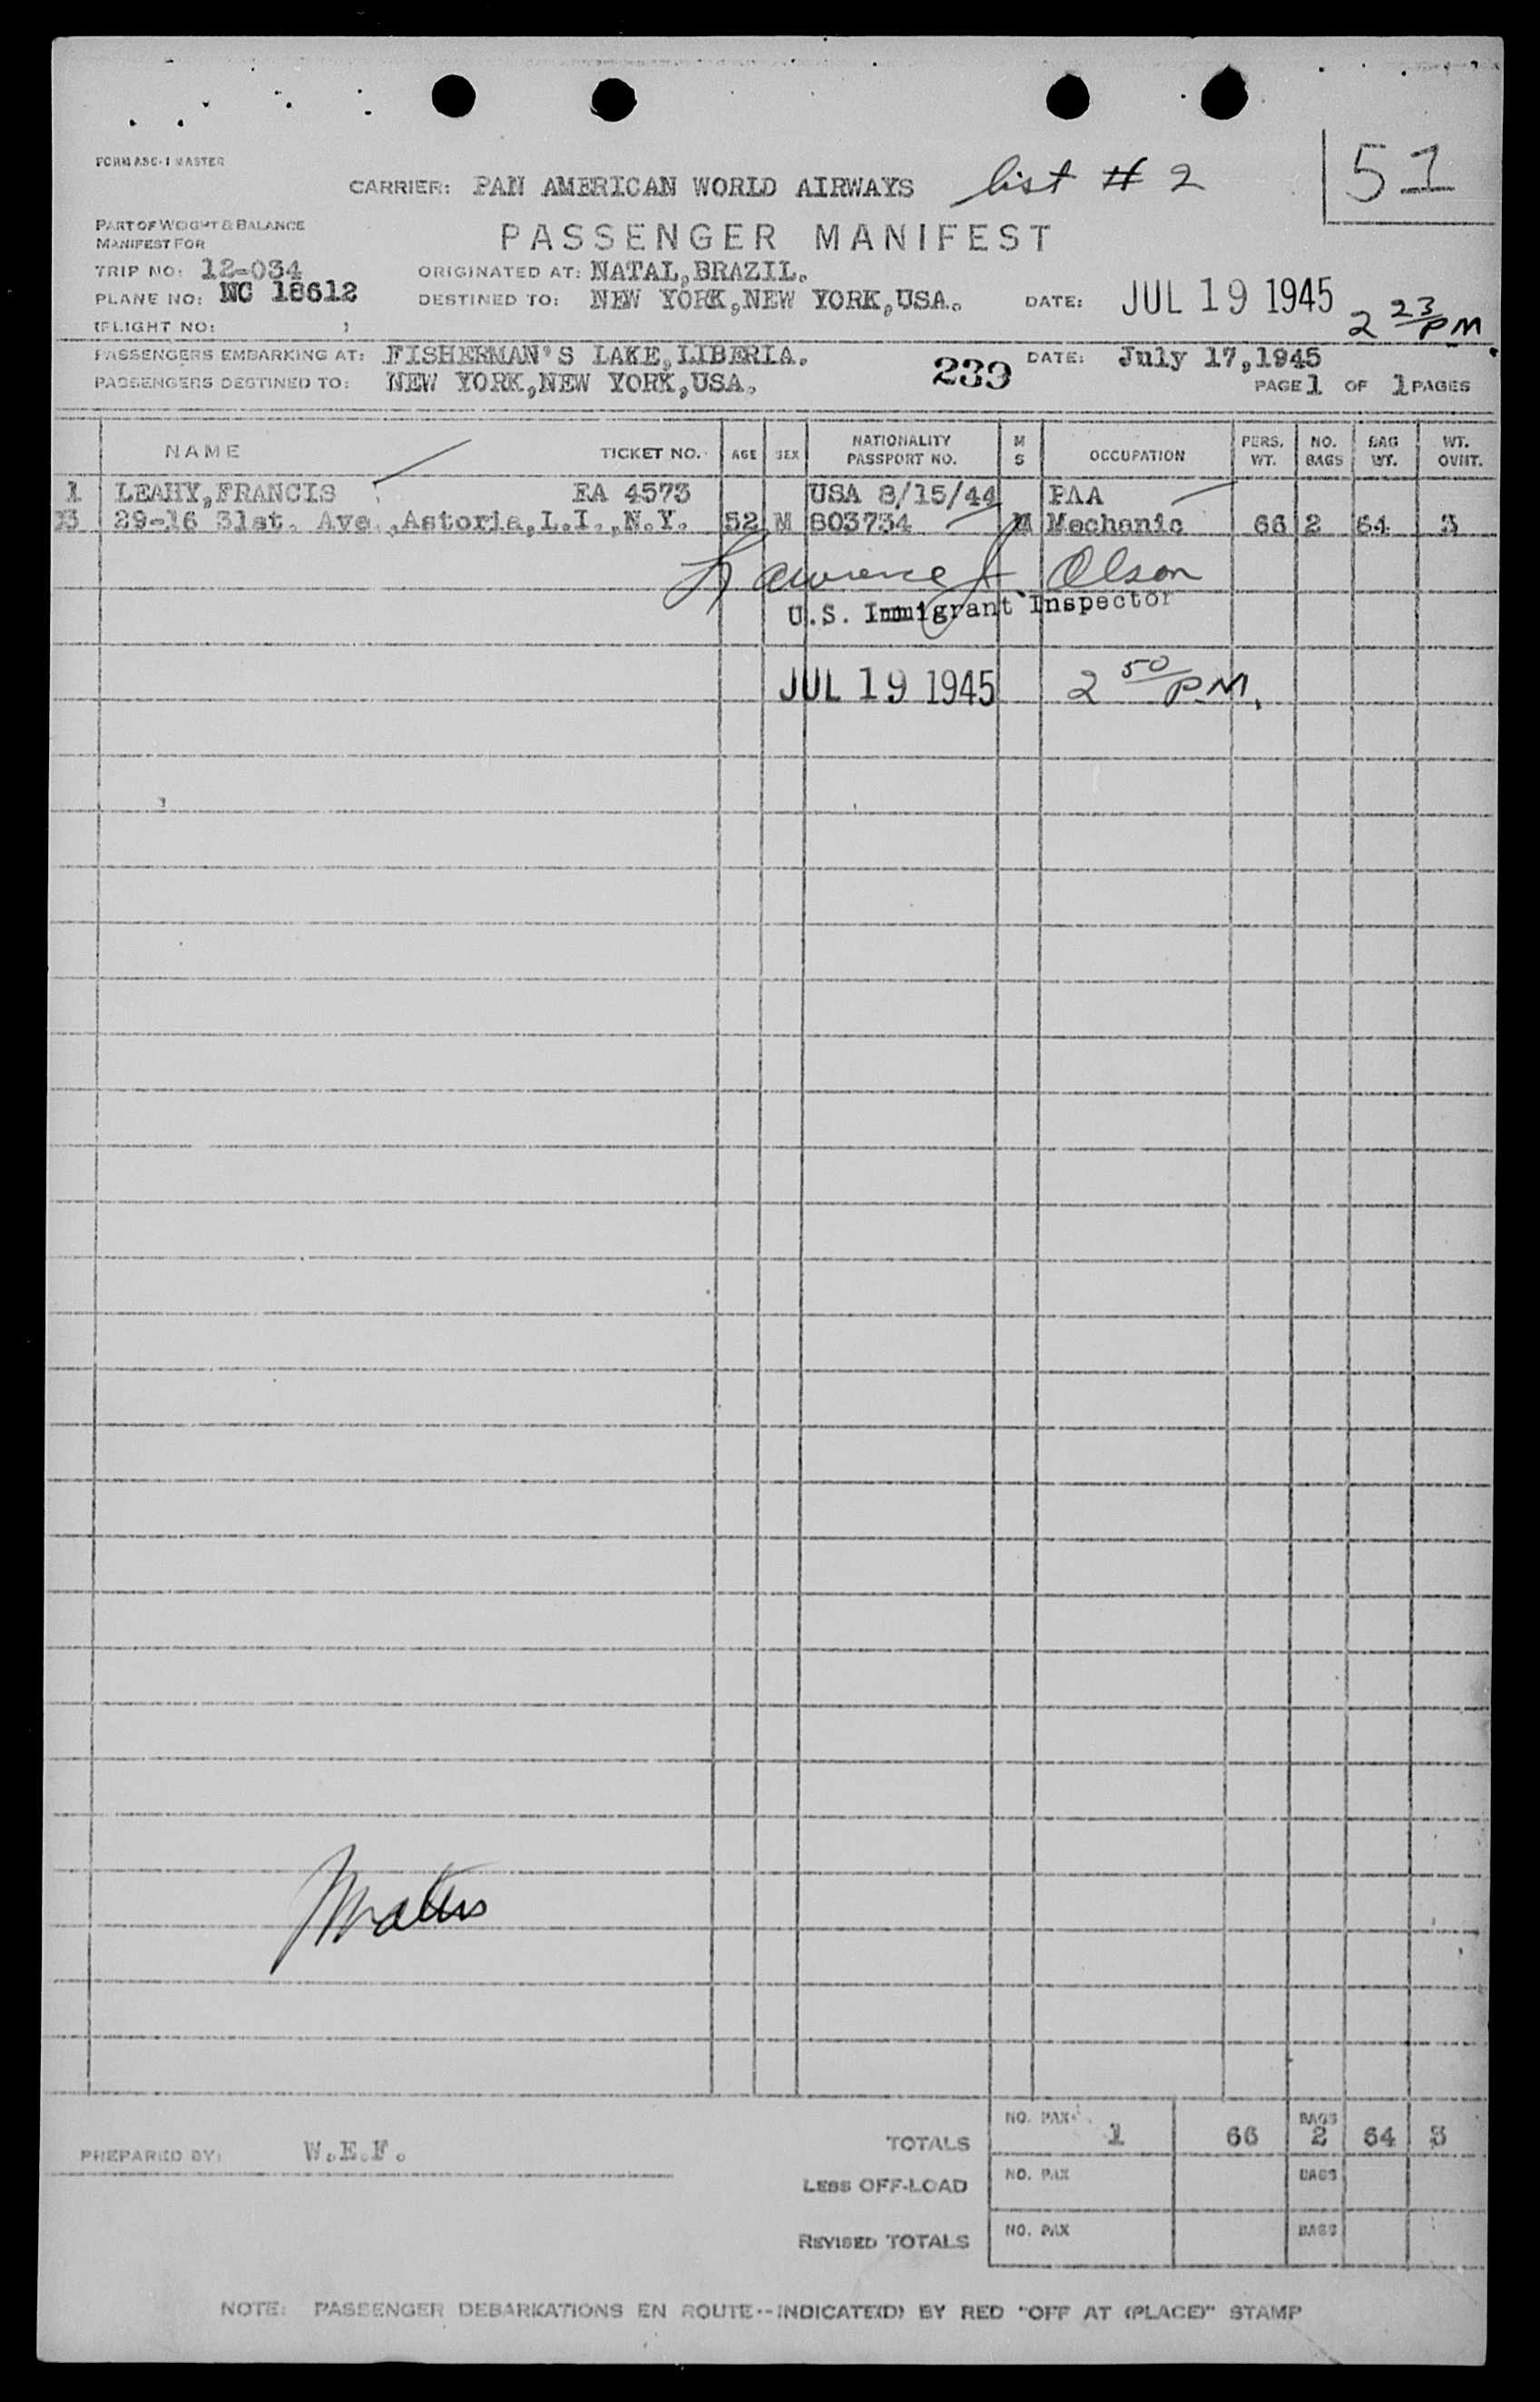 FORM ASC-1 MASTER
CARRIER: PAN AMERICAN WORLD AIRWAYS list # 2
51
PART OF WEIGHT & BALANCE
MANIFEST FOR
PASSENGER MANIFEST
TRIP NO: 12-034 ORIGINATED AT: NATAL,BRAZIL.
PLANE NO: NC 18612 DESTINED TO: NEW YORK,NEW YORK,USA. DATE: JUL 19 1945 2 23/PM
(FLIGHT NO: )
PASSENGERS EMBARKING AT: FISHERMAN'S LAKE,LIBERIA. 239 DATE: July 17,1945
PASSENGERS DESTINED TO: NEW YORK,NEW YORK,USA. PAGE 1 OF 1 PAGES
NAME TICKET NO. AGE SEX NATIONALITY PASSPORT NO. M S OCCUPATION PERS. WT. NO. BAGS BAG WT. WT. OVHT.
1 LEAHY,FRANCIS EA 4573 USA 8/15/44 PAA
29-16 31st. Ave.,Astoria,L.I.,N.Y. 52 M 803734 M Mechanic 66 2 64 3
Lawrence J Olson
U.S. Immigrant Inspector
JUL 19 1945 2 50/PM.
NO. PAX 1 66 BAGS 2 64 3
TOTALS
PREPARED BY: W.E.F.
LESS OFF-LOAD NO. PAX BAGS
REVISED TOTALS NO. PAX BAGS
NOTE: PASSENGER DEBARKATIONS EN ROUTE--INDICATE(D) BY RED "OFF AT (PLACE)" STAMP